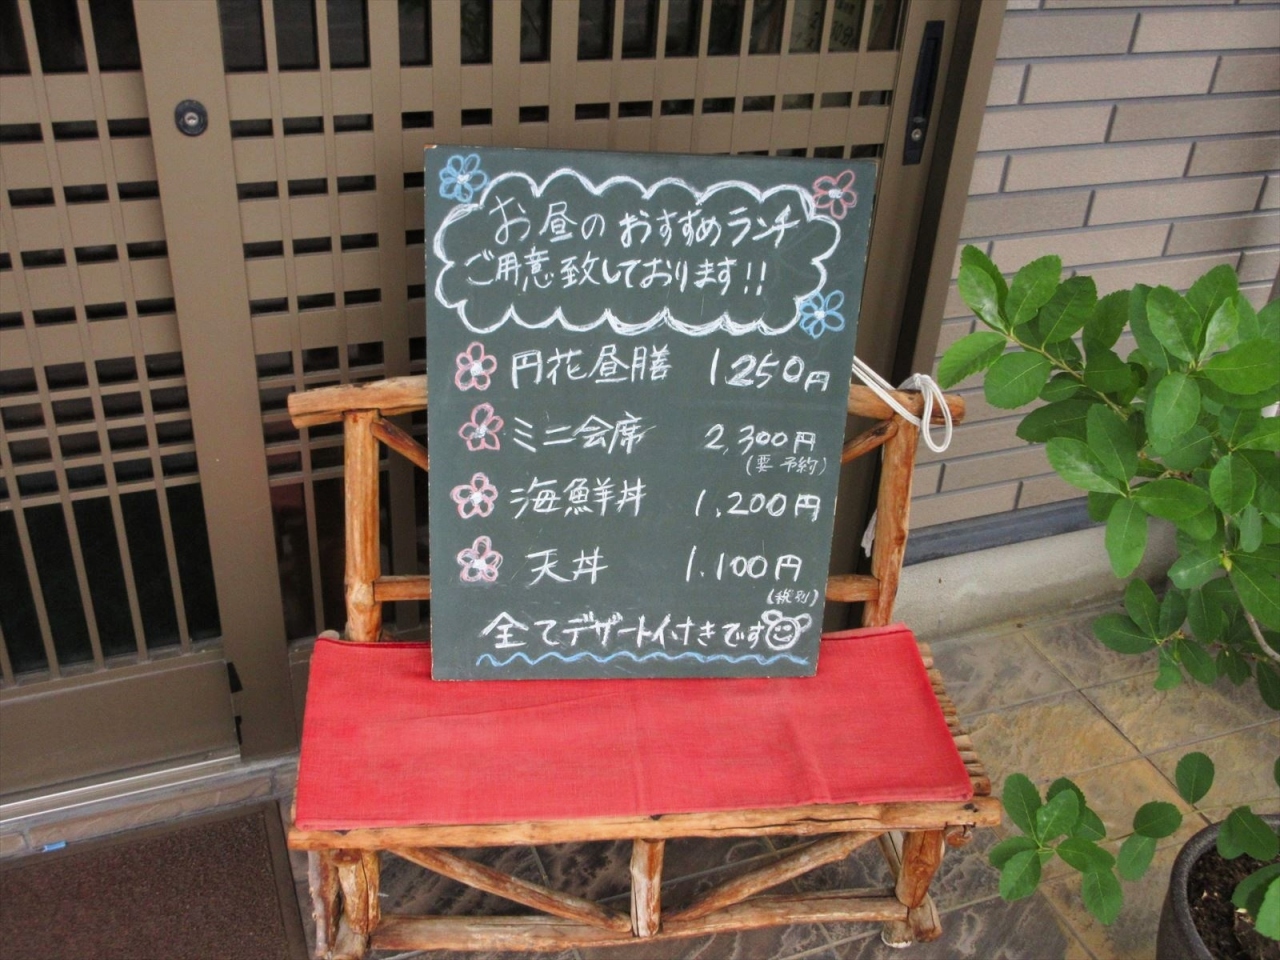 お昼のおすすめランチ
ご用意致しております!!
円花昼膳 1,250円
ミニ会席 2,300円
(要予約)
海鮮丼 1,200円
天丼 1,100円
(税別)
全てデザート付きです